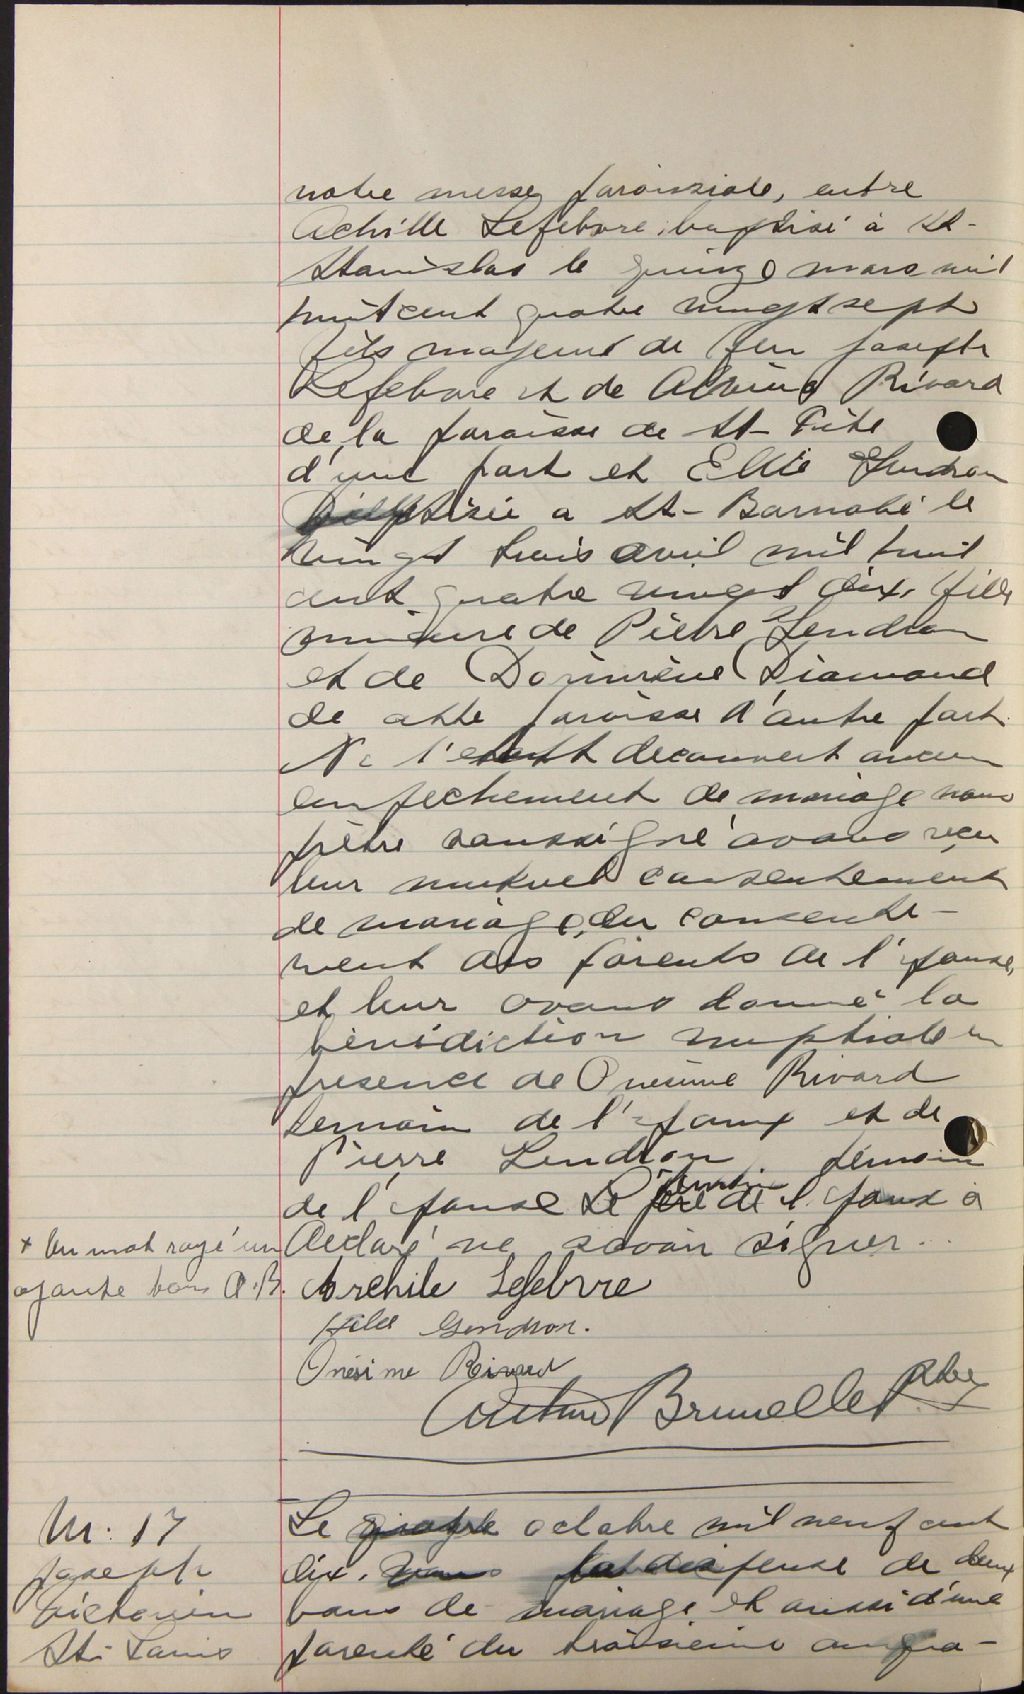 notre messe paroissiale, entre
Achille Lefebvre, baptisé à St-
Stanislas le quinze mars mil
huit cent quatre vingt sept
fils majeur de feu Joseph
Lefebvre et de Alvina Rivard
de la paroisse de St-Tite
d'une part et Elda Gendron
baptisée a St-Barnabé le
vingt trois avril mil huit
cent quatre vingt dix, fille
mineure de Pierre Gendron
et de Dorimène Diamond
de cette paroisse d'autre part.
Ne s'étant decouvert aucun
empechement de mariage nous
prêtre soussigné avons reçu
leur mutuel consentement
de mariage, du consente-
ment des parents de l'épouse,
et leur avons donné la
bénédiction nuptiale en
presence de Onesime Rivard
temoin de l'epoux et de
Pierre Gendron temoin
de l'epouse Le père témoin de l'epoux a
declaré ne savoir signer...
+ Un mot rayé un
ajouté bon A.B.
Archile Lefebvre
Gendron.
Onésime Rivard
Arthur Brunelle Ptre
M: 17
Joseph
Victorien
St-Louis
Le quatre octobre mil neuf cent
dix, vu la dispense de deux
bans de mariage et aussi d'une
parenté du troisieme au qua-